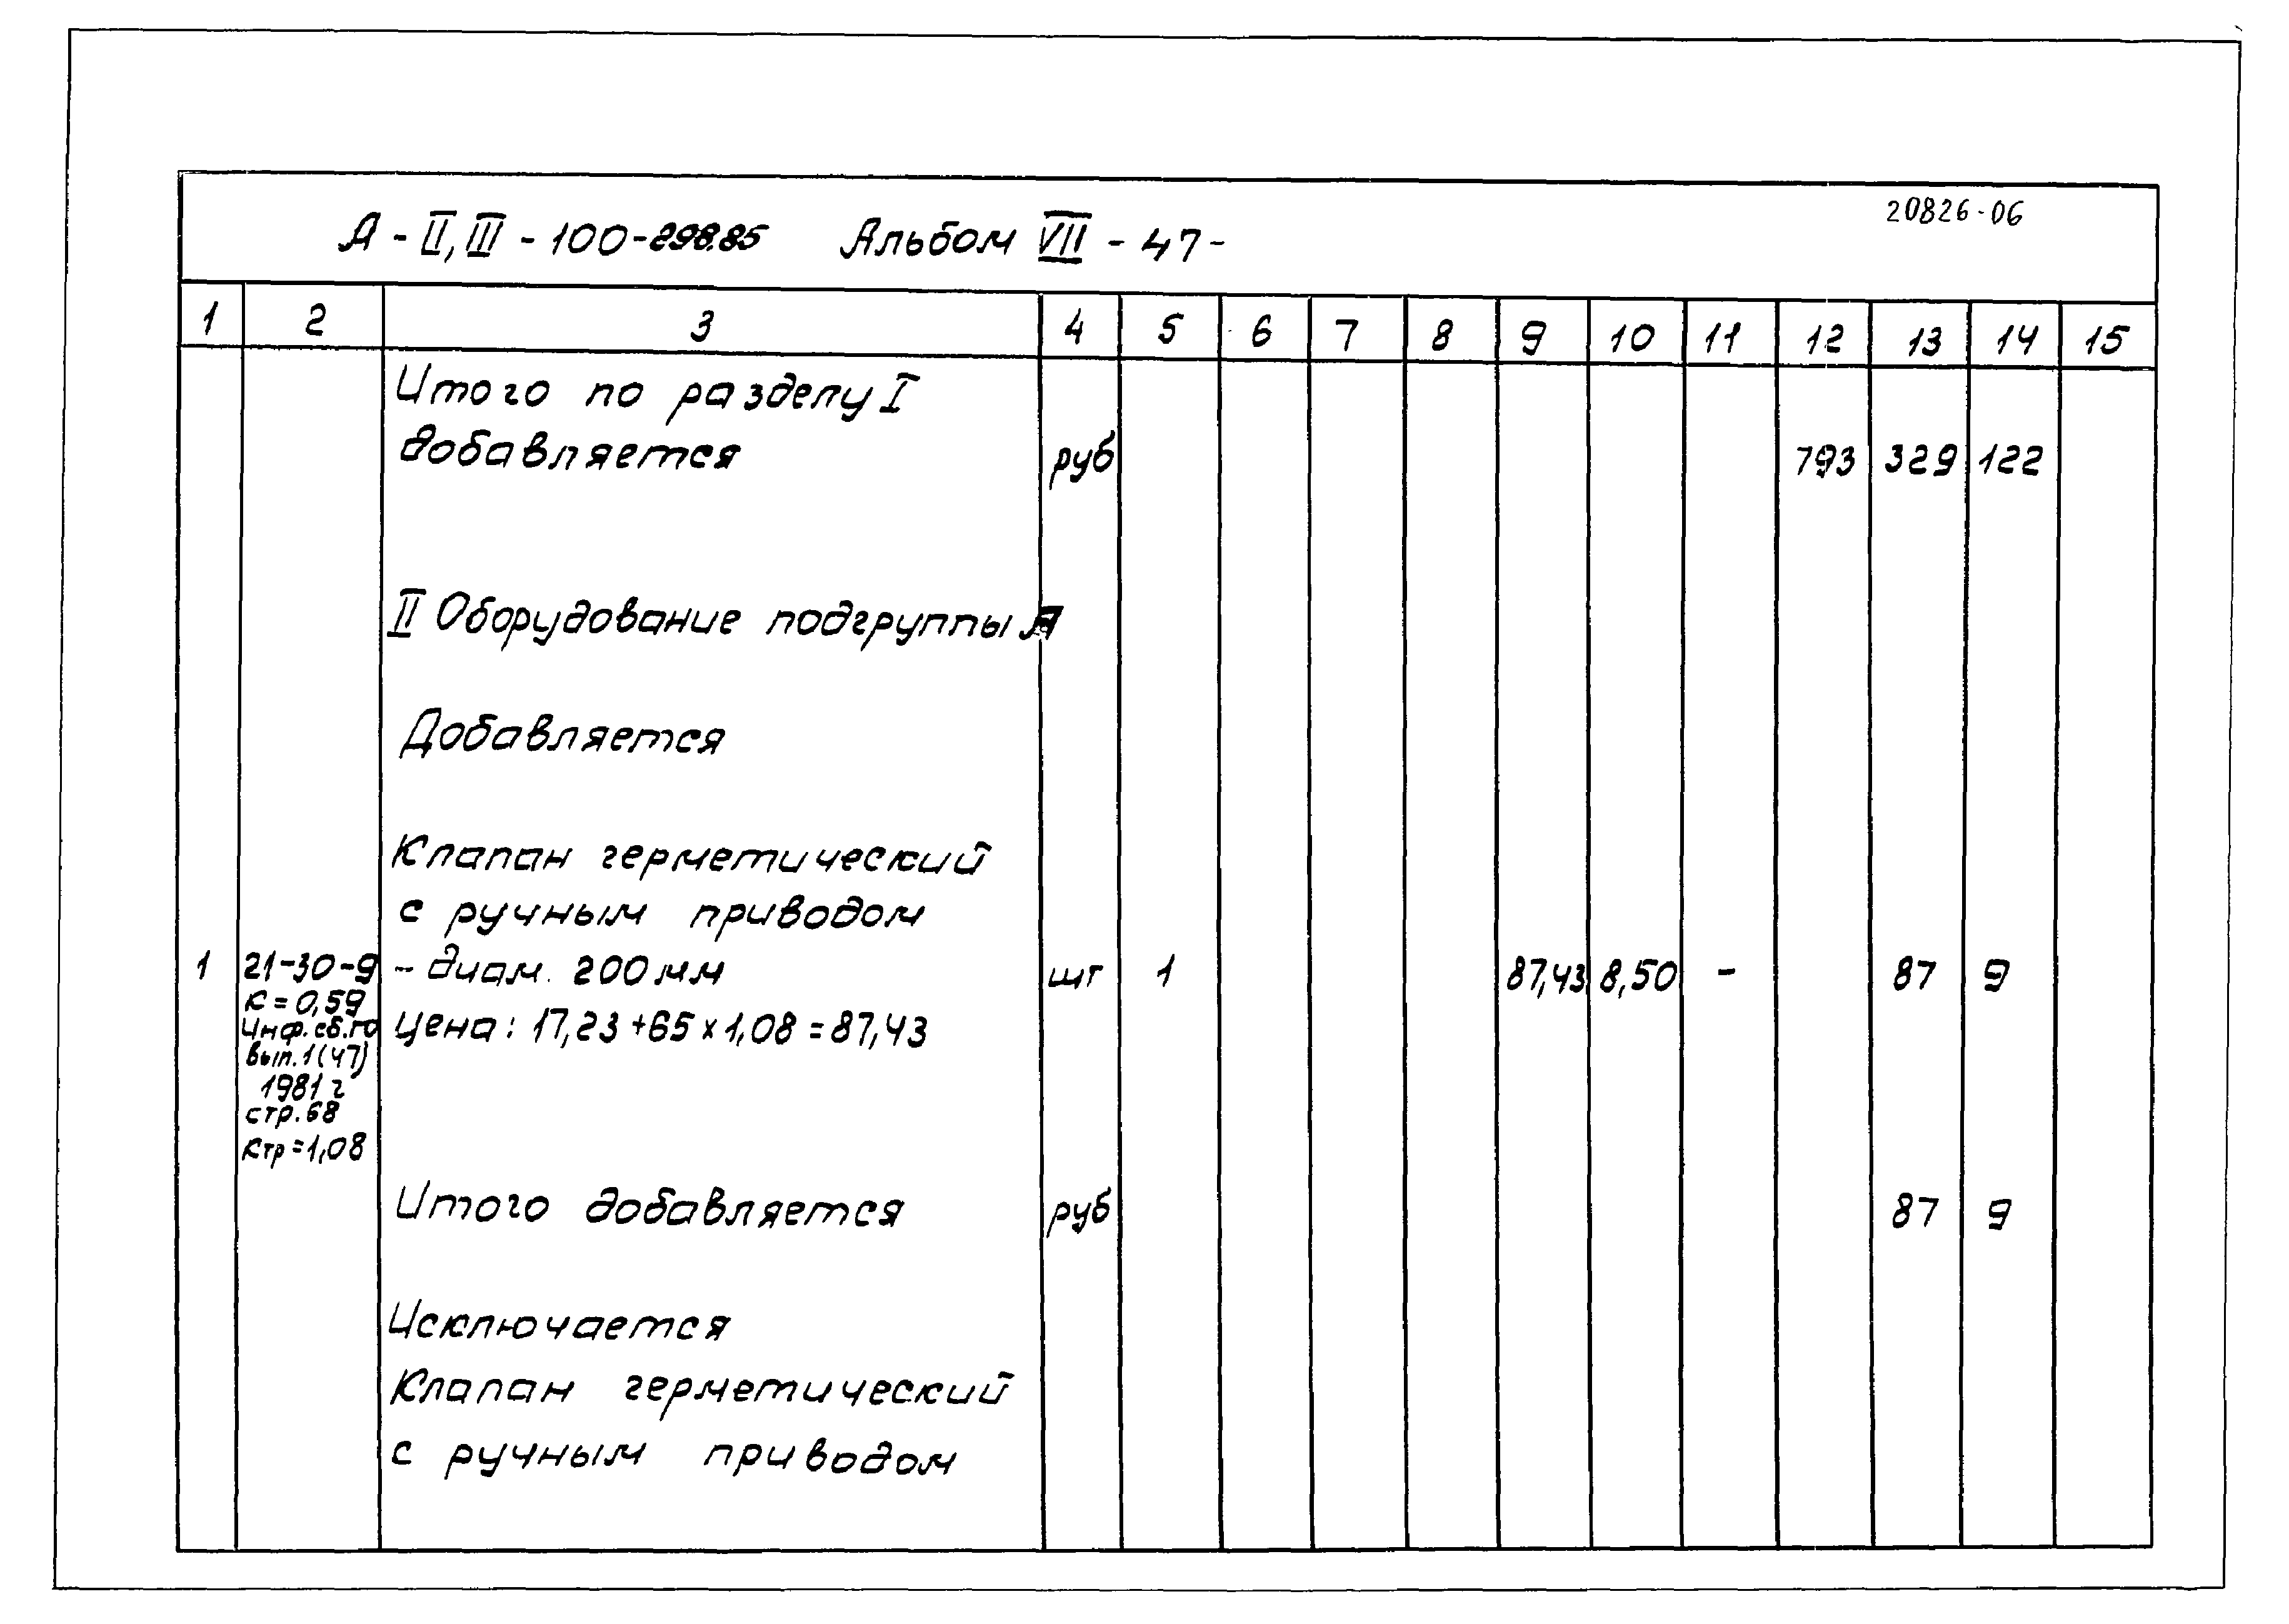 20826-06
А - II, III - 100-298.85 Альбом VII - 47-
1 2 3 4 5 6 7 8 9 10 11 12 13 14 15
Итого по разделу I
добавляется руб 793 329 122
II Оборудование подгруппы А
Добавляется
Клапан герметический
с ручным приводом
1 21-30-9 - диам. 200 мм шт 1 87,43 8,50 - 87 9
к = 0,59
Инф. сб. ГО Цена: 17,23 + 65 х 1,08 = 87,43
вып. 1 (47)
1981 г
стр. 68
Ктр = 1,08
Итого добавляется руб 87 9
Исключается
Клапан герметический
с ручным приводом